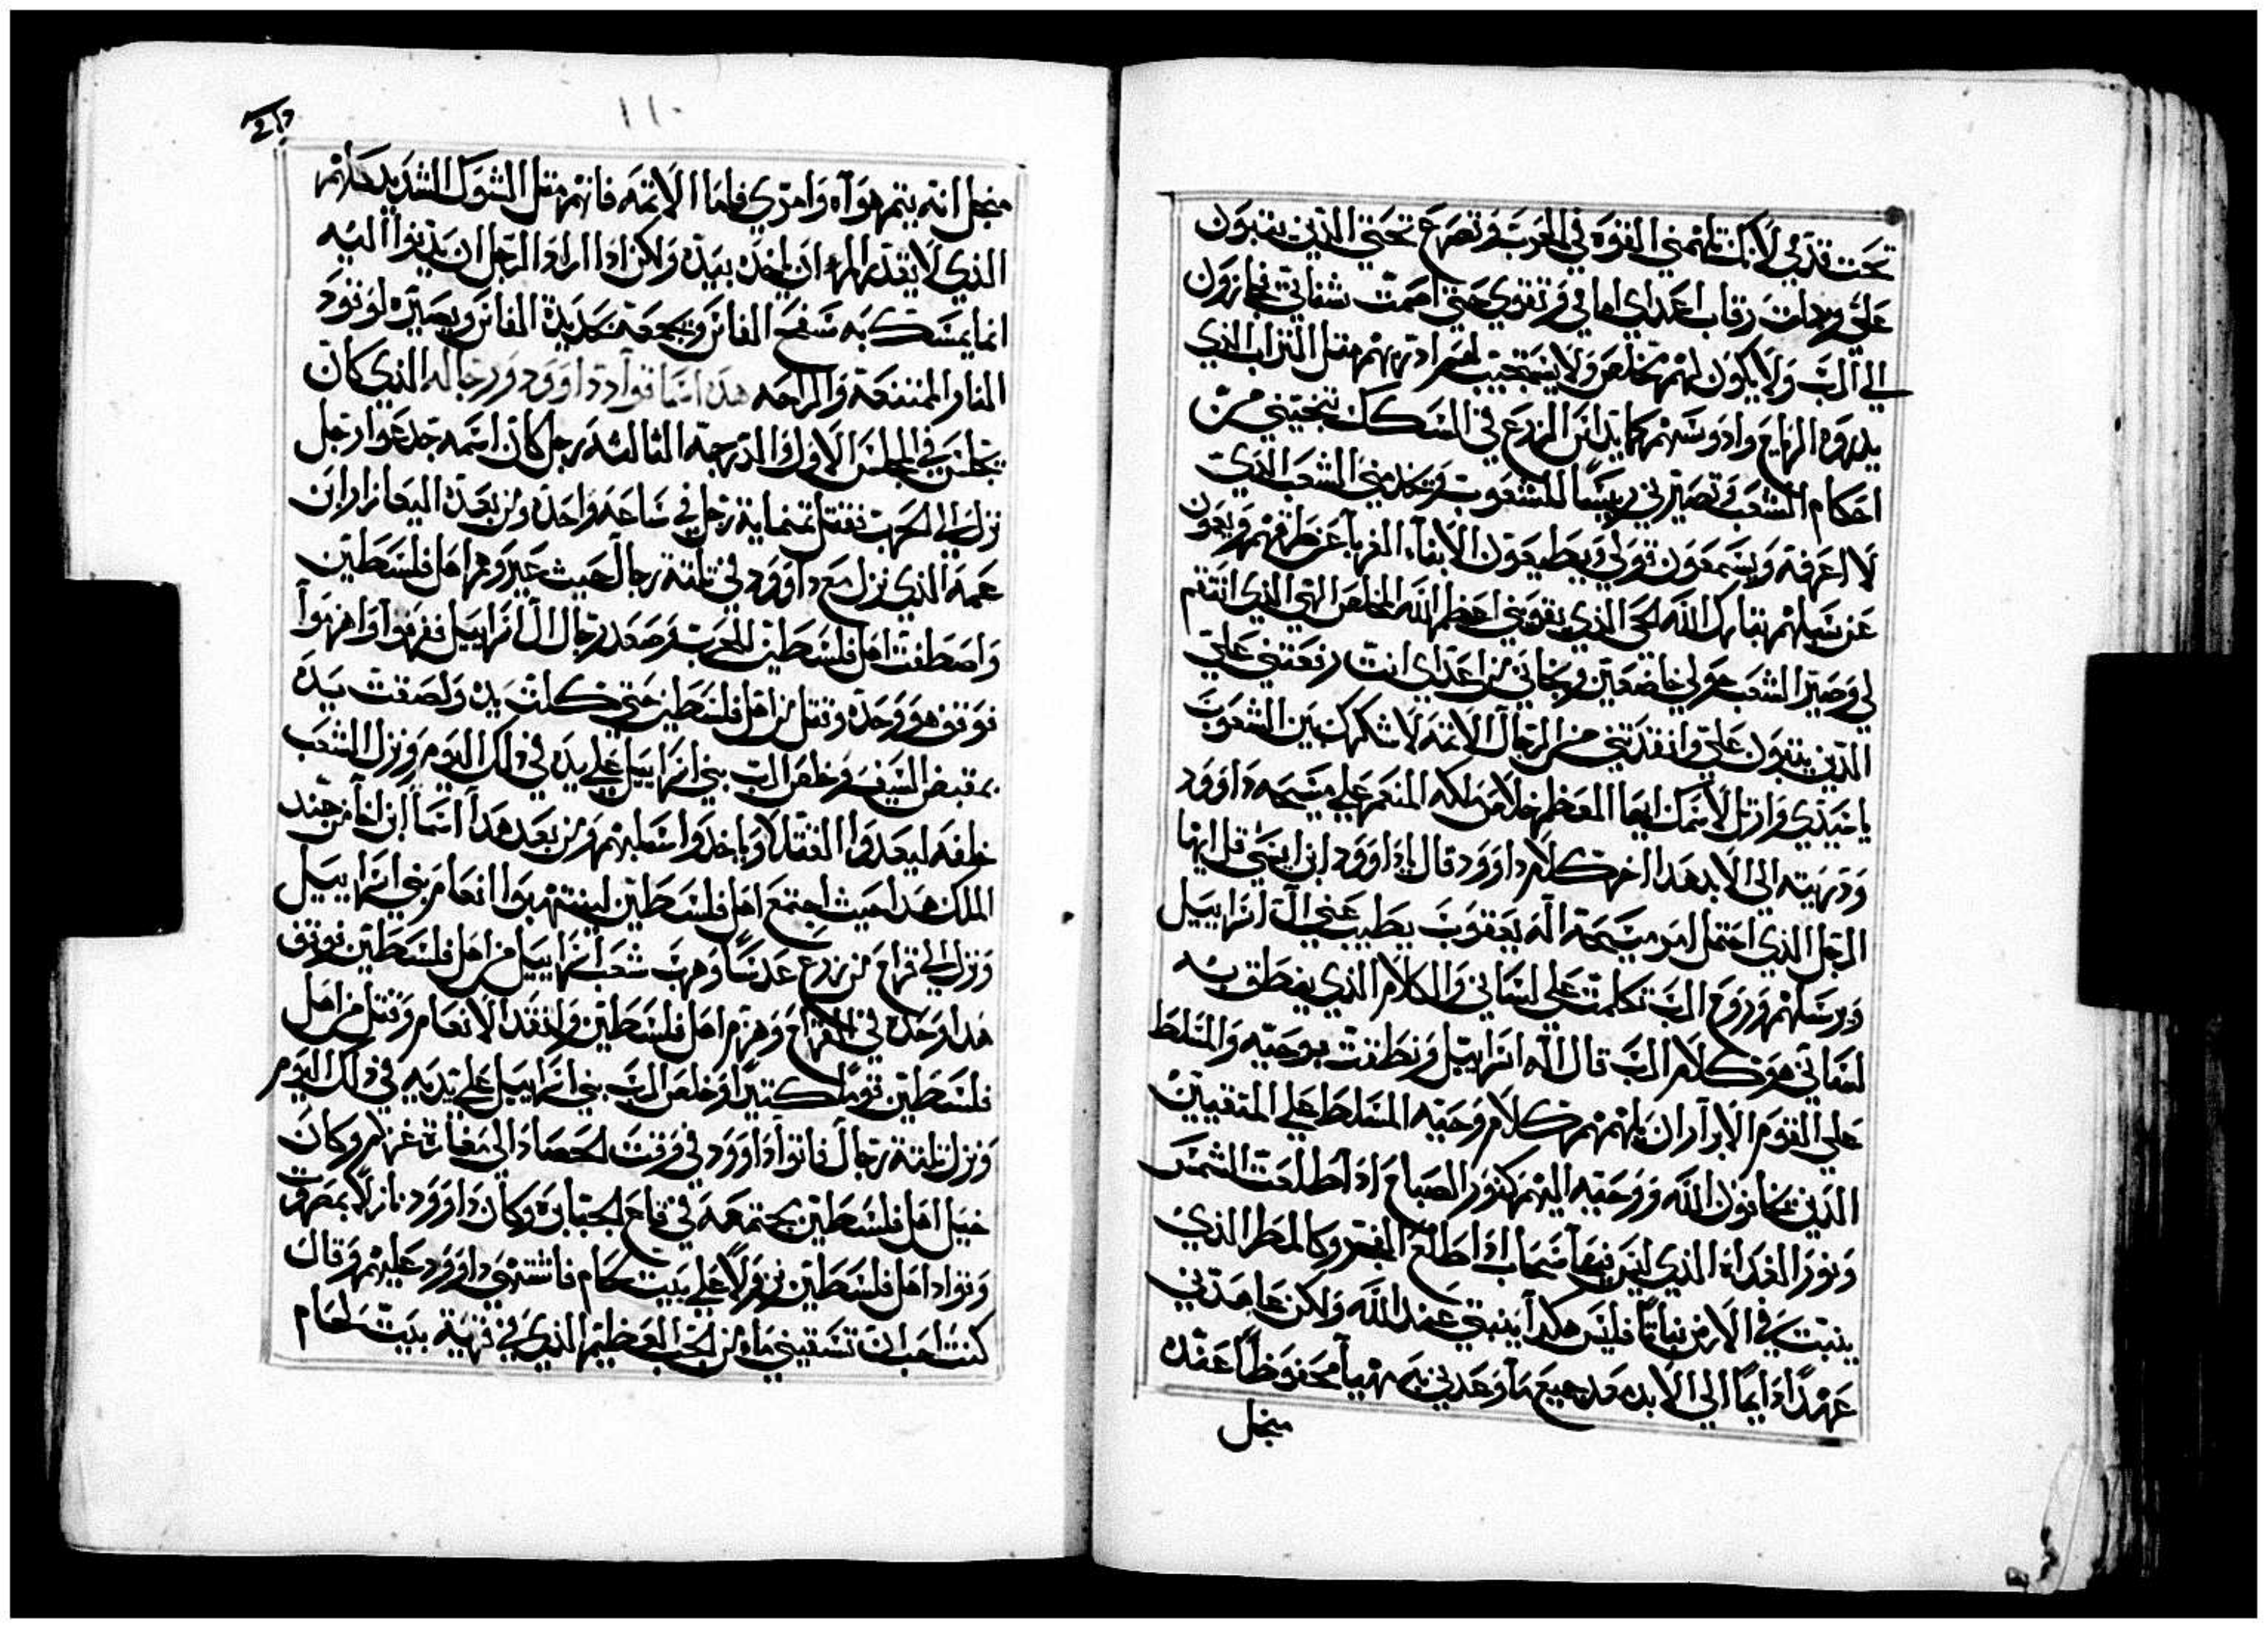 تحت قدمي لانك تلهمني القوه في الحرب وتصرع تحتي الذين يثبون
علي رقاب اعداي امامي وتقوي حتي اصمت شفاتي فيجازون
الي الرب ولا يكون لهم مخلص ولا يستجيب لهم ادريهم مثل التراب الذي
يدروه الرياح وادوسهم كما يداس الزرع في السكك تنجيني من
احكام الشعب وتصيرني رييسًا للشعوب وتخدمني الشعب الذي
لا اعرفه ويسمعون قولي ويطيعون الابناء الغربا عن طرقهم ويعون
عن سبلهم تبارك الله الحي الذي يقويني اعظم الله المخلص الهي الذي انتقم
لي وصير الشعب حولي خاضعين ونجاني من اعداي انت رفعتني علي
الذين يثبون علي وانقذتني من الرجال الاثمه لاشكرك بين الشعوب
يا سيدي وارتل لاسمك ايها المعظم خلاص ملكه المنعم علي مسيحه داوود
ودريته الي الابد هدا اخر كلام داوود قال داوود ابن ايسي قل ايها
الرجل الذي احتمل امر مسيحة اله يعقوب يطيب عني اله اسراييل
ويرسلهم وروح الرب تكلمت علي لساني والكلام الذي ينطق به
لساني هو كلام الرب قال اله اسراييل ونطقت بوحيه والمسلط
علي القوم الابرار ان يلهمهم كلام وحيه المسلط علي المتقيين
الذين يخافون الله ووحيه اليهم كنور الصباح ادا طلعت الشمس
ونور الغداه الذي ليس فيها سحاب ادا طلع الفجر وكالمطر الذي
ينبت في الارض نباتا فليس هكدا ينبتي عند الله ولكن عاهدني
عهدًا دايمًا الي الابد جميع ما وعدني به مهيا محفوظًا عنده
منجل
١١٠
منجل انه يتم هواه وامري فاما الاثمه فانهم مثل الشوك الشديد كلهم
الذي لا يقدر المرء ان ياخده بيده ولكن ادا اراد الرجل ان يدنوا اليه
انما يمسك به سفح الفاس ويجمعه بحديدة الفاس ويصيره لوقود
النار المنتفعه والراحه هدا اسما قواد داوود ورجاله الذي كان
يجلس في المجلس الاول والدرجة الثالثه رجل كان اسمه جدعوا رجل
نزل الي الحرب فقتل ثمنماية رجل في ساحه واحده ومن بعده اليعازار ابن
عمه الذي نزل مع داوود في ثلثة رجال حيث عيروهم اهل فلسطين
واصطفت اهل فلسطين للحرب وصعد رجال ال اسراييل فهربوا وانهزموا
فوقف هو وحده وقتل من اهل فلسطين حتي كلت يده ولصقت يده
بمقبض السيف وخلص الرب بني اسراييل علي يده في ذلك اليوم ونزل الشعب
خلفه ليعدوا القتلا وياخدوا اسلبهم ومن بعد هدا اسما ابن اغا من جند
الملك هدا حيث اجتمع اهل فلسطين لينتهبوا انعام بني اسراييل
ونزل الي قراح من زرع عدسًا وهرب شعب اسراييل من اهل فلسطين فوقف
هدا وحده في القراح وهزم اهل فلسطين وانقد الانعام وقتل من اهل
فلسطين قومًا كتيرًا وخلص الرب بني اسراييل علي يديه في ذلك اليوم
ونزل ثلثة رجال فاتوا داوود في وقت الحصاد الي مغارة غزلام وكان
خيل اهل فلسطين مجتمعه في قاع الجبابره وكان داوود نازلًا بمصروت
وقواد اهل فلسطين نزولًا علي بيت لحام فاشتهي داوود عليهم وقال
كنت احب ان تسقيني ماء من الجب العظيم الذي في قرية بيت لحام